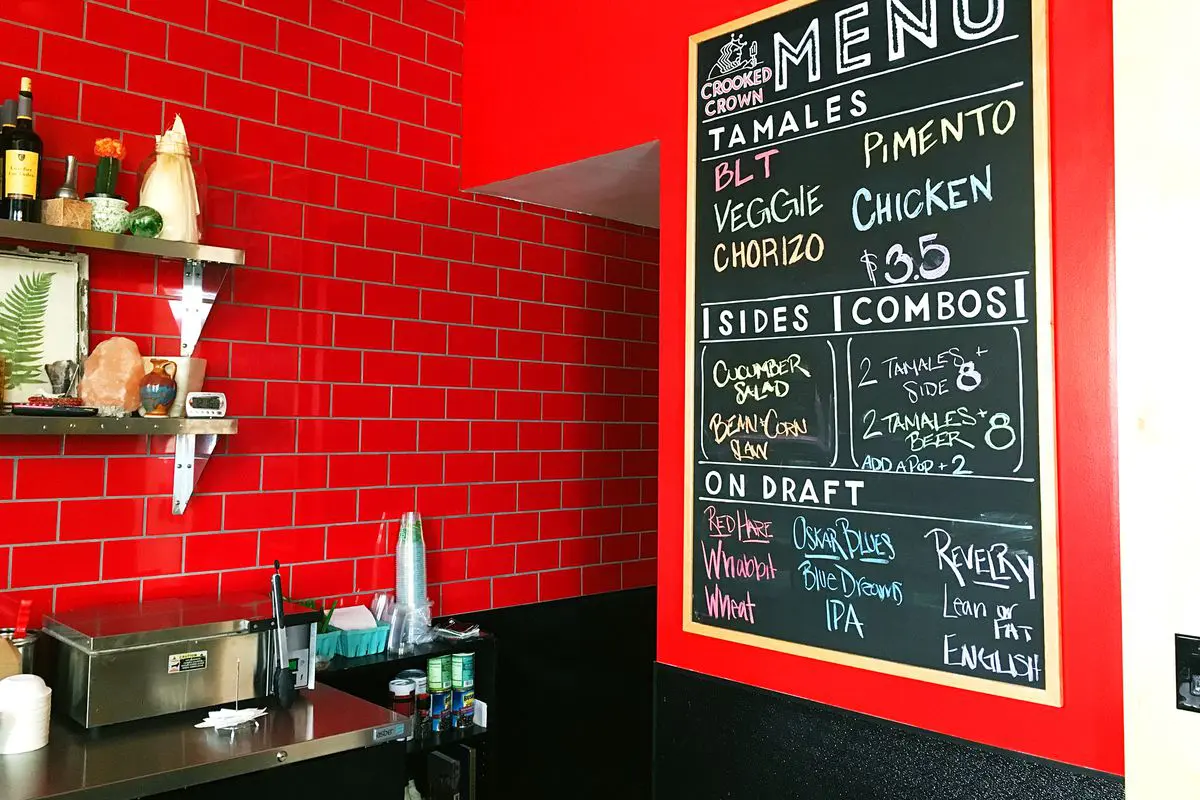 CROOKED
CROWN
MENU
TAMALES
BLT
PiMENTO
VEGGIE
CHICKEN
CHORIZO
$3.5
SIDES
COMBOS
CUCUMBER
SALAD
BEAN & CORN
SLAW
2 TAMALES +
SIDE 8
2 TAMALES +
BEER 8
ADD A POP + 2
ON DRAFT
RED HARE
Whabbit
Wheat
OSKAR BLUES
Blue Dreams
IPA
REVELRY
Lean or
FAT
ENGLISH